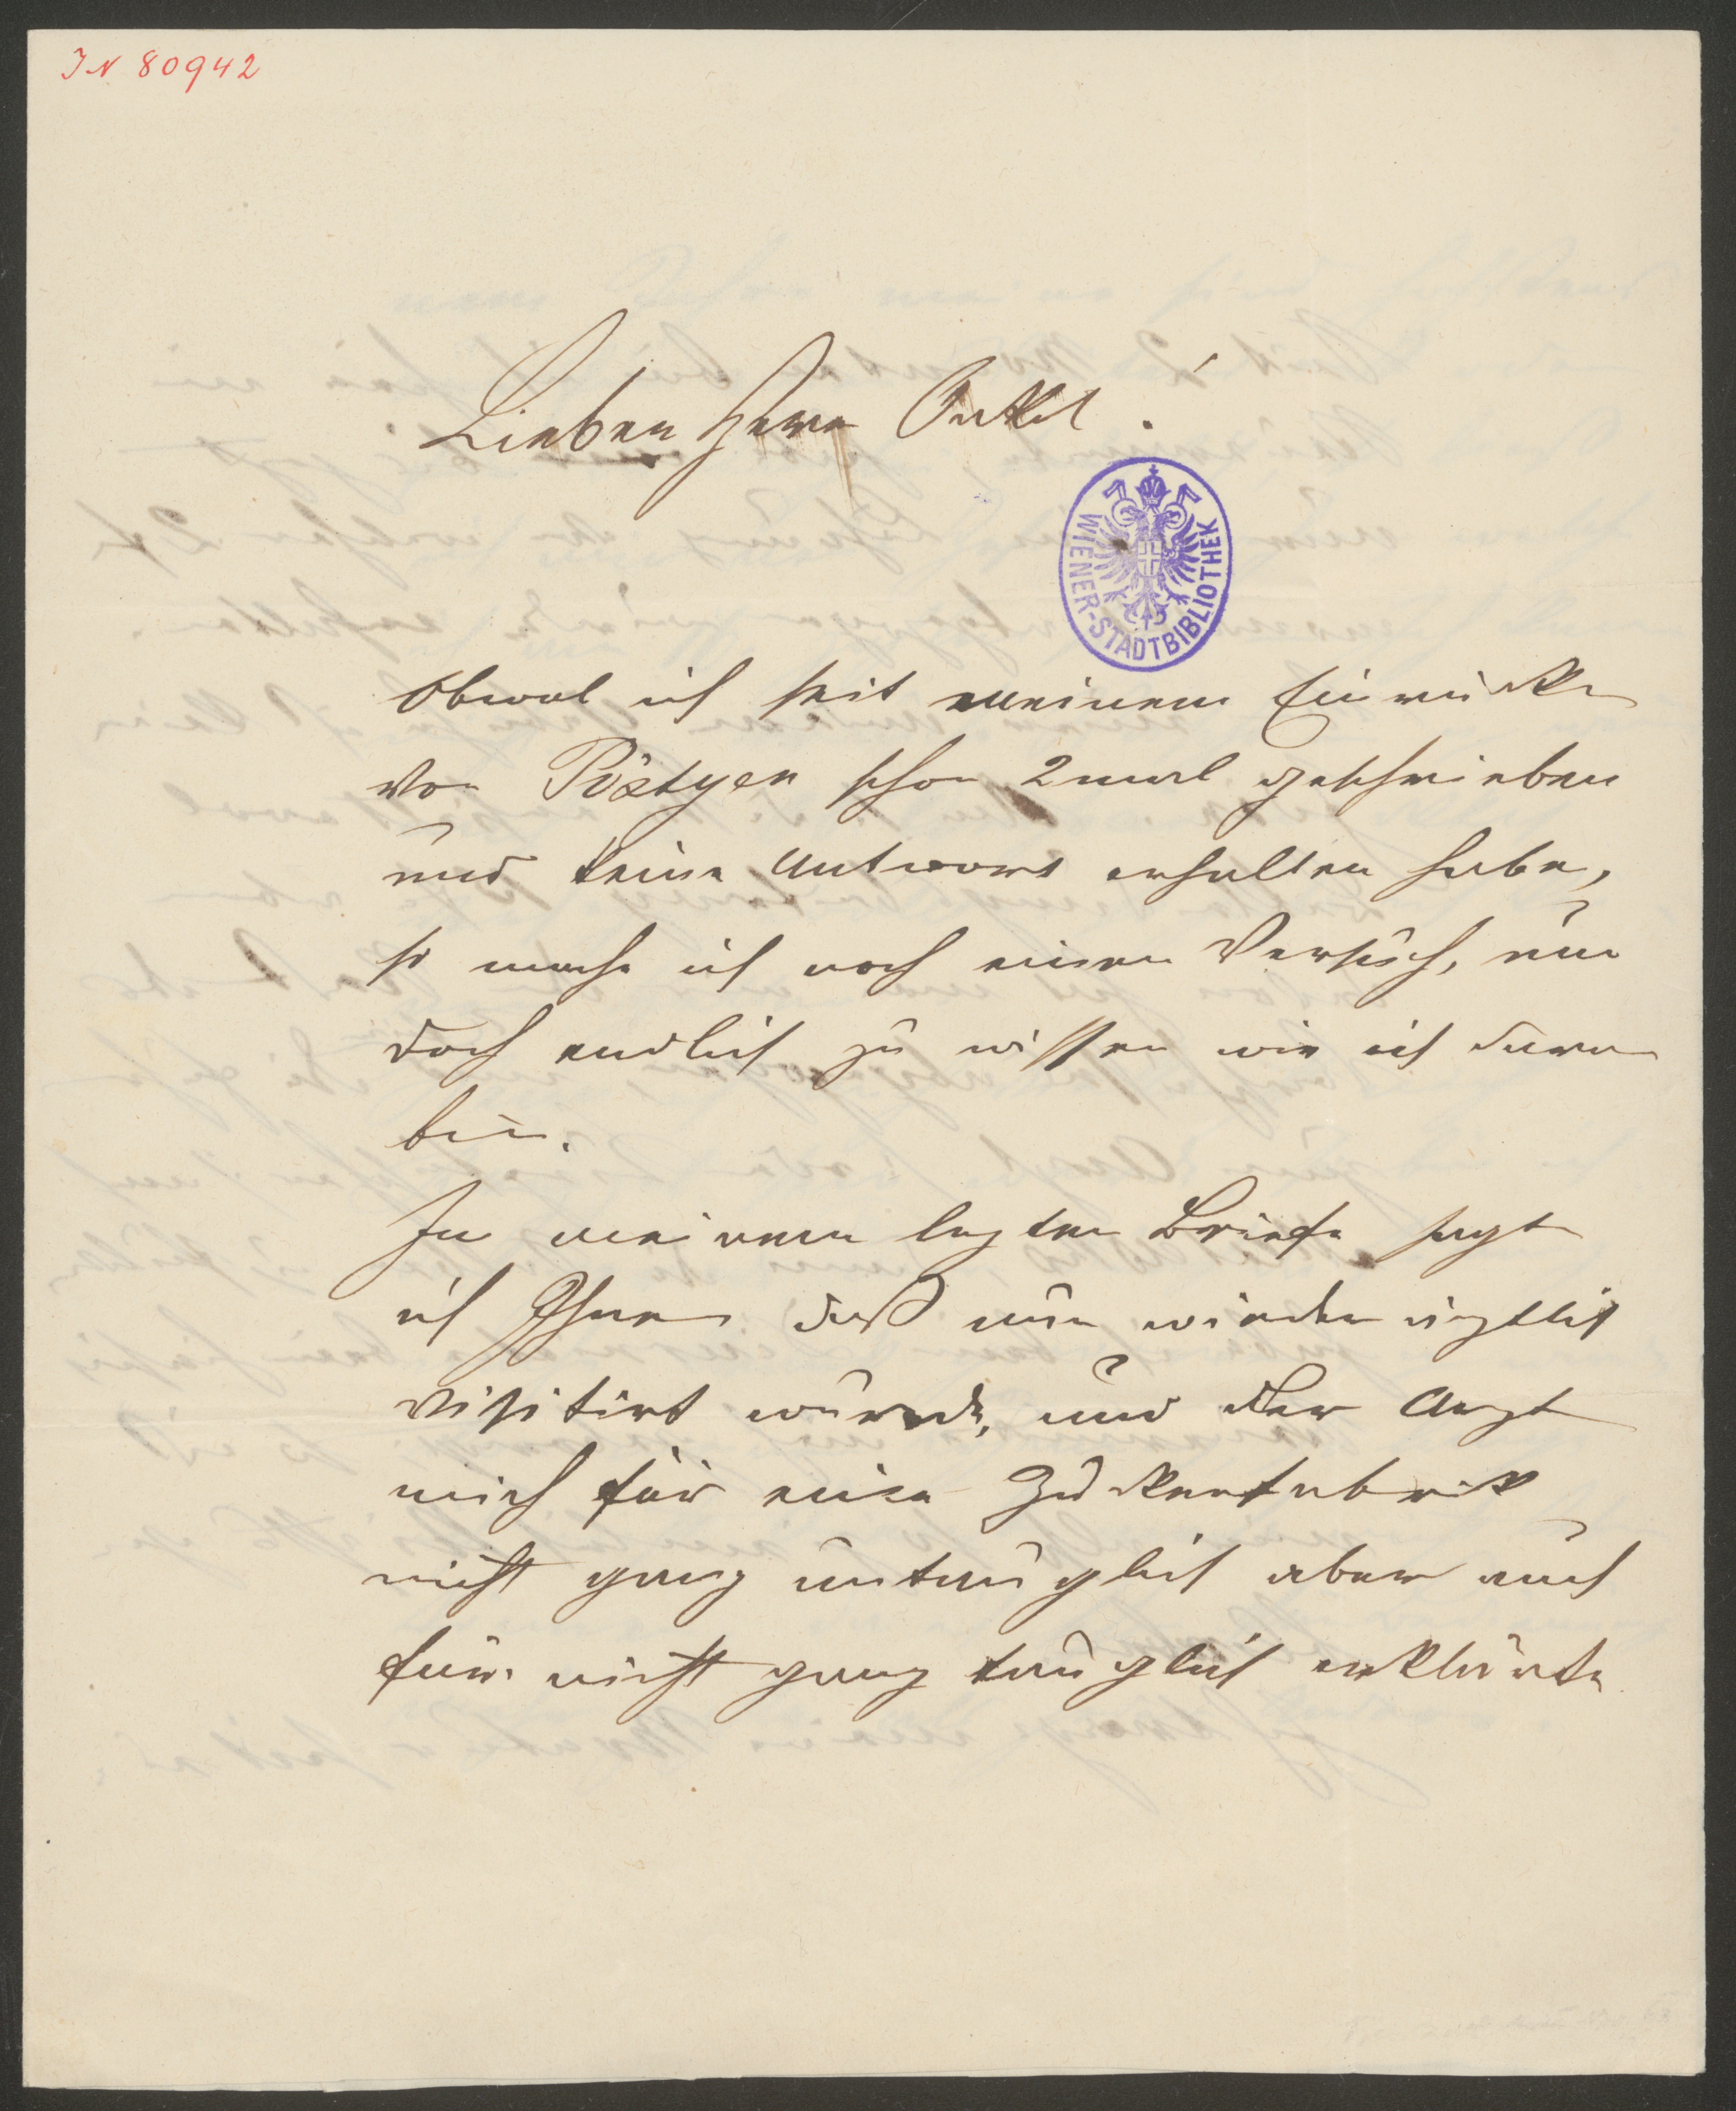 IN 80942
Lieber Herr Onkel!
WIENER-STADTBIBLIOTHEK
Obwol ich seit meinem Einrücken
von Pöstyen schon 2mal geschrieben
und keine Antwort erhalten habe,
so mache ich noch einen Versuch, um
doch endlich zu wissen wie ich daran
bin.
In meinem letzten Briefe sagte
ich Ihnen daß ein wieder ärztlich
visitirt wurde, und der Arzt
mich für eine Zuckerfabrik
nicht ganz untauglich aber auch
für nicht ganz tauglich erklärte